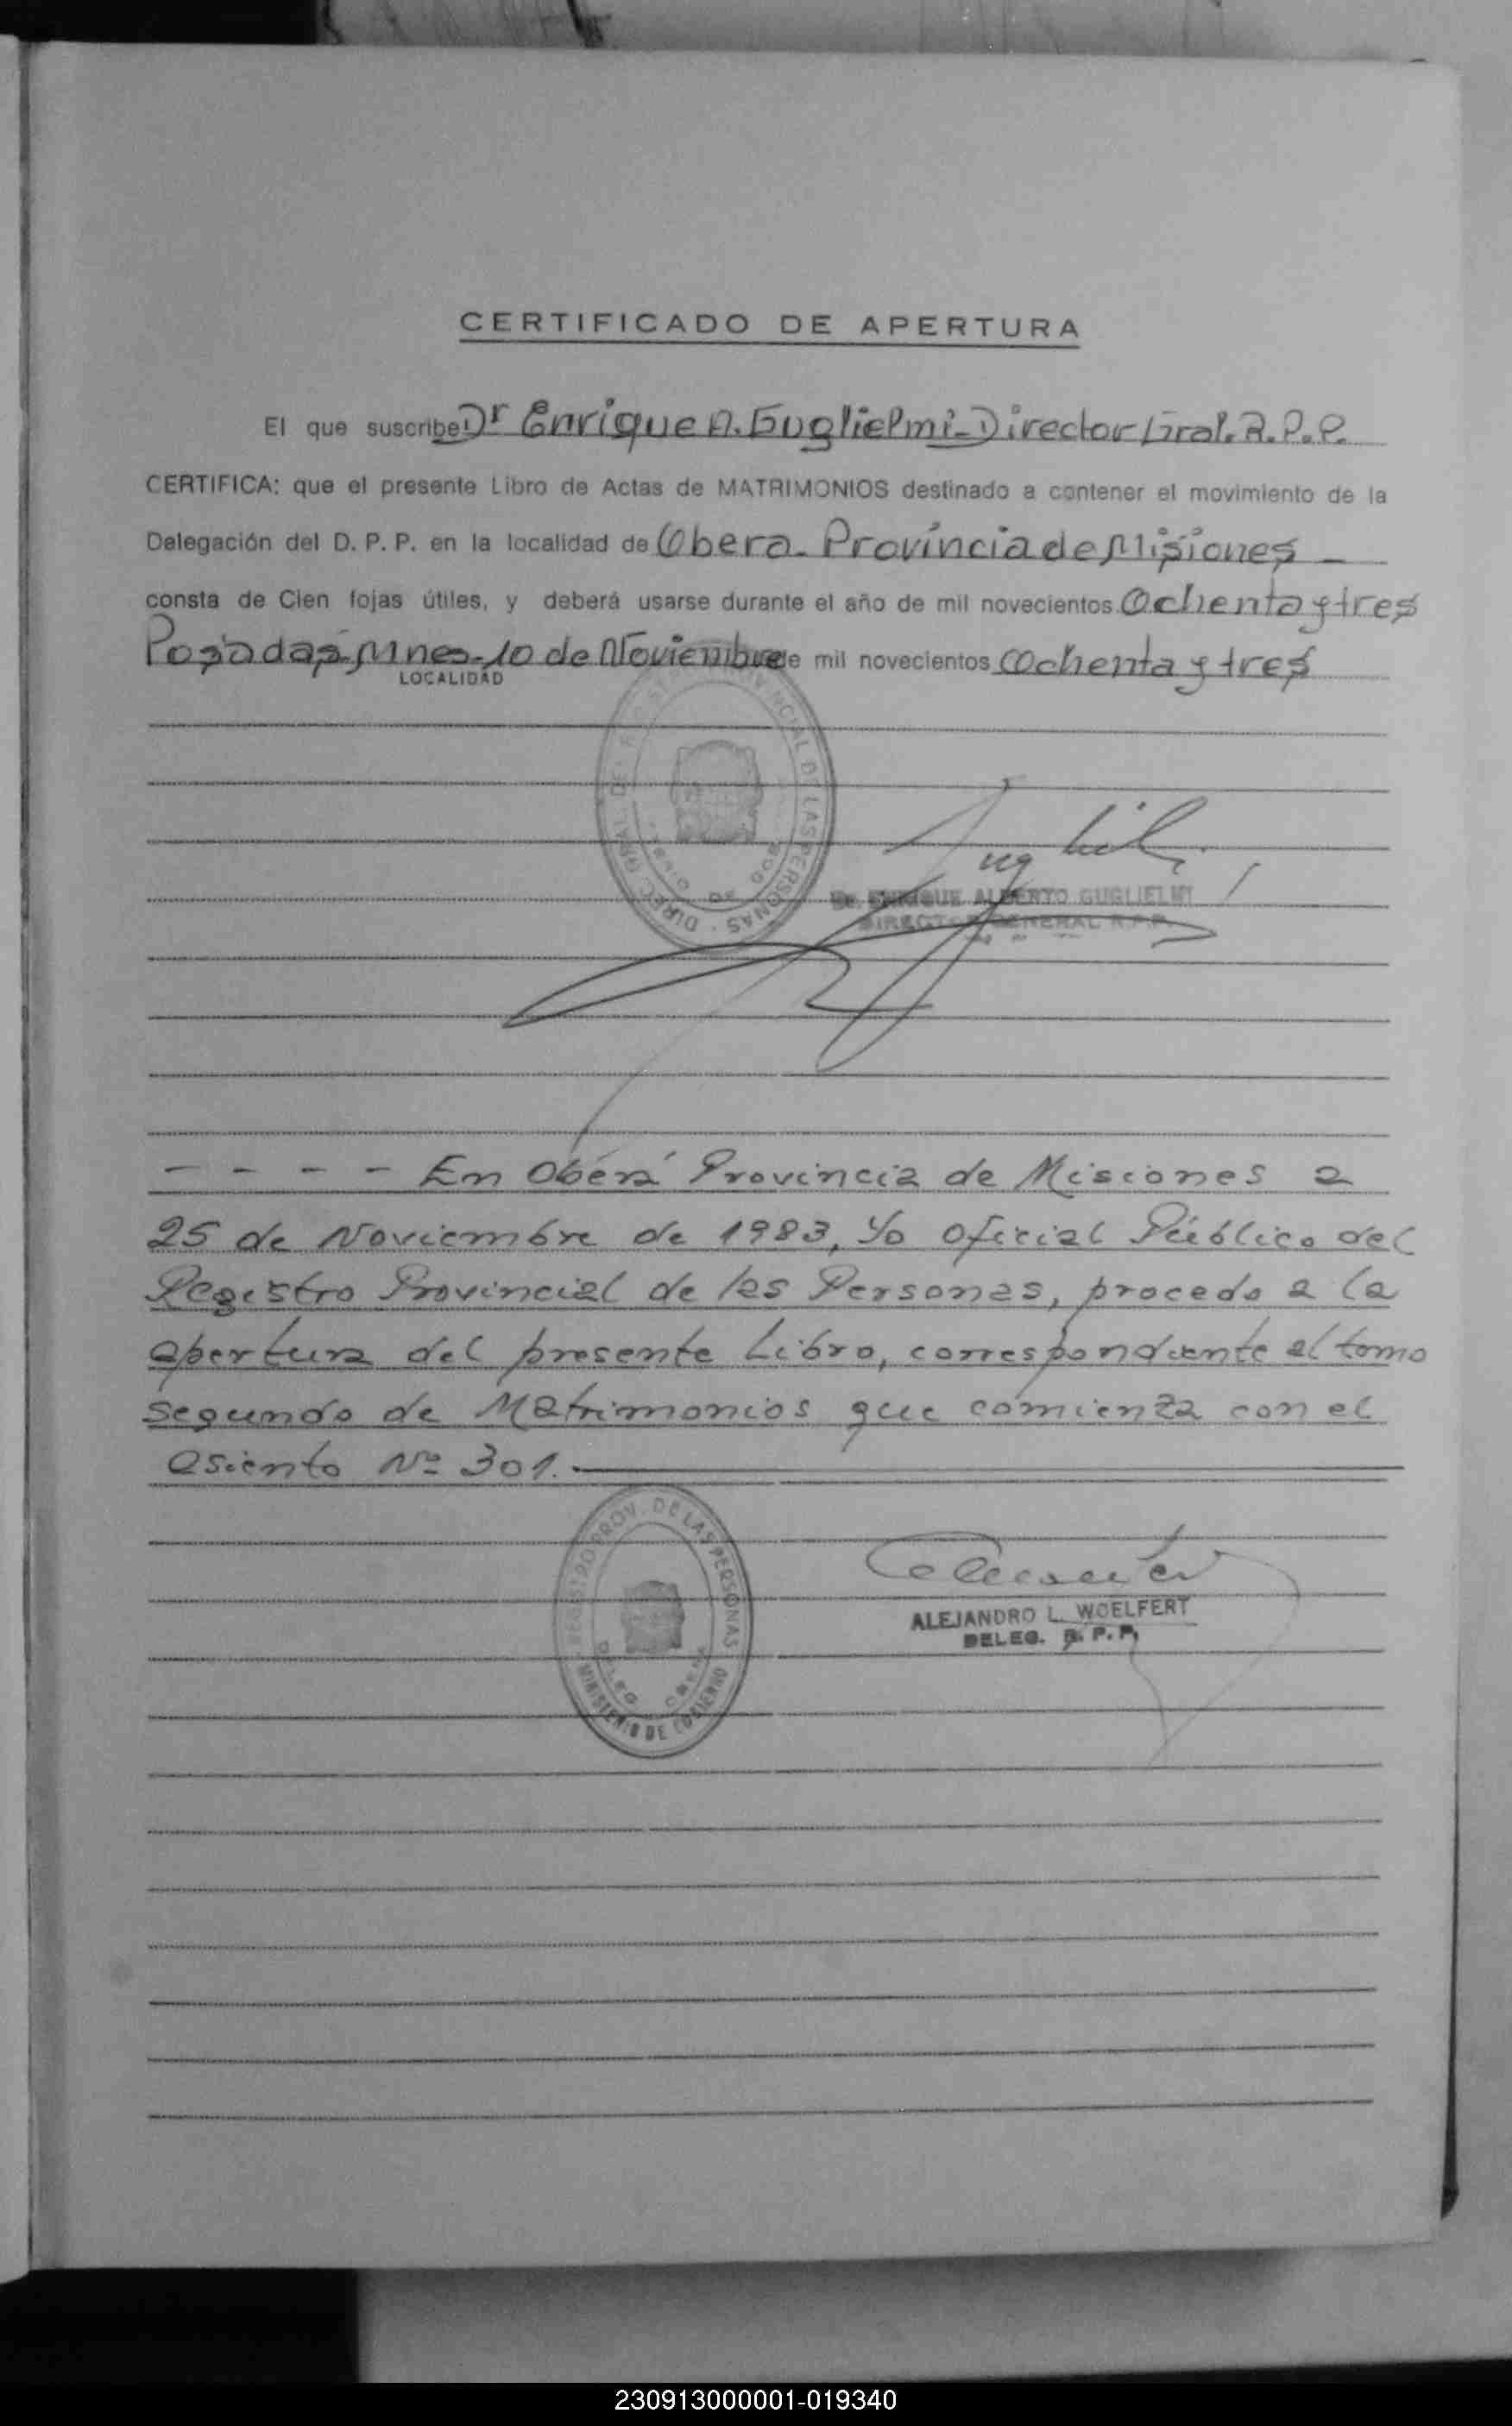 CERTIFICADO DE APERTURA
El que suscribe Dr Enrique A. Guglielmi - Director Gral. R.P.P.
CERTIFICA: que el presente Libro de Actas de MATRIMONIOS destinado a contener el movimiento de la
Delegación del D. P. P. en la localidad de Obera - Provincia de Misiones -
consta de Cien fojas útiles, y deberá usarse durante el año de mil novecientos Ochenta y tres
Posadas Mnes - 10 de Noviembre de mil novecientos Ochenta y tres
LOCALIDAD
DIREC. GRAL. DEL REGISTRO PROVINCIAL DE LAS PERSONAS
Dr. ENRIQUE ALBERTO GUGLIELMI
DIRECTOR GENERAL R.P.P.
- - - - En Oberá Provincia de Misiones a
25 de Noviembre de 1983, Yo Oficial Público del
Registro Provincial de las Personas, procedo a la
apertura del presente Libro, correspondiente al tomo
segundo de Matrimonios que comienza con el
asiento Nº 301.
REGISTRO PROV. DE LAS PERSONAS
DELEG. OBERA
MINISTERIO DE GOBIERNO
ALEJANDRO L. WOELFERT
DELEG. R. P. P.
230913000001-019340